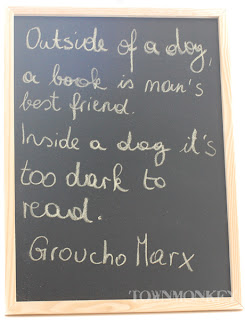 Outside of a dog,
a book is man's
best friend.
Inside a dog it's
too dark to
read.
Groucho Marx
TOWNMONKEY